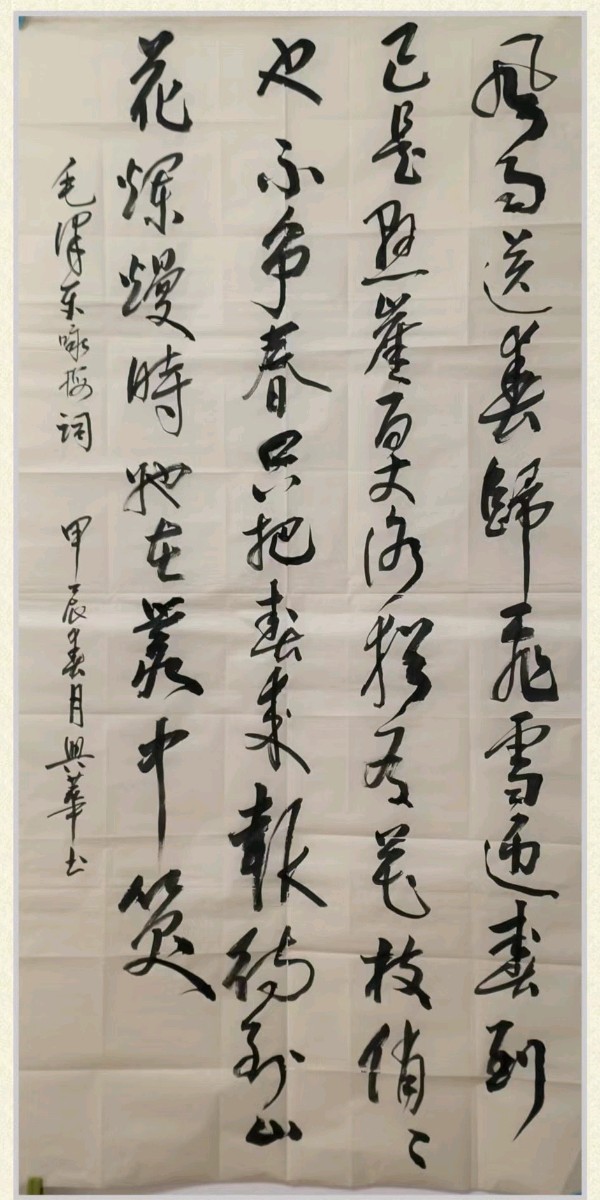 风雨送春歸飛雪迎春到
已是悬崖百丈冰猶有花枝俏〻
也不争春只把春来報待到山
花爛熳時她在叢中笑
毛澤东咏梅詞 甲辰春月興華书